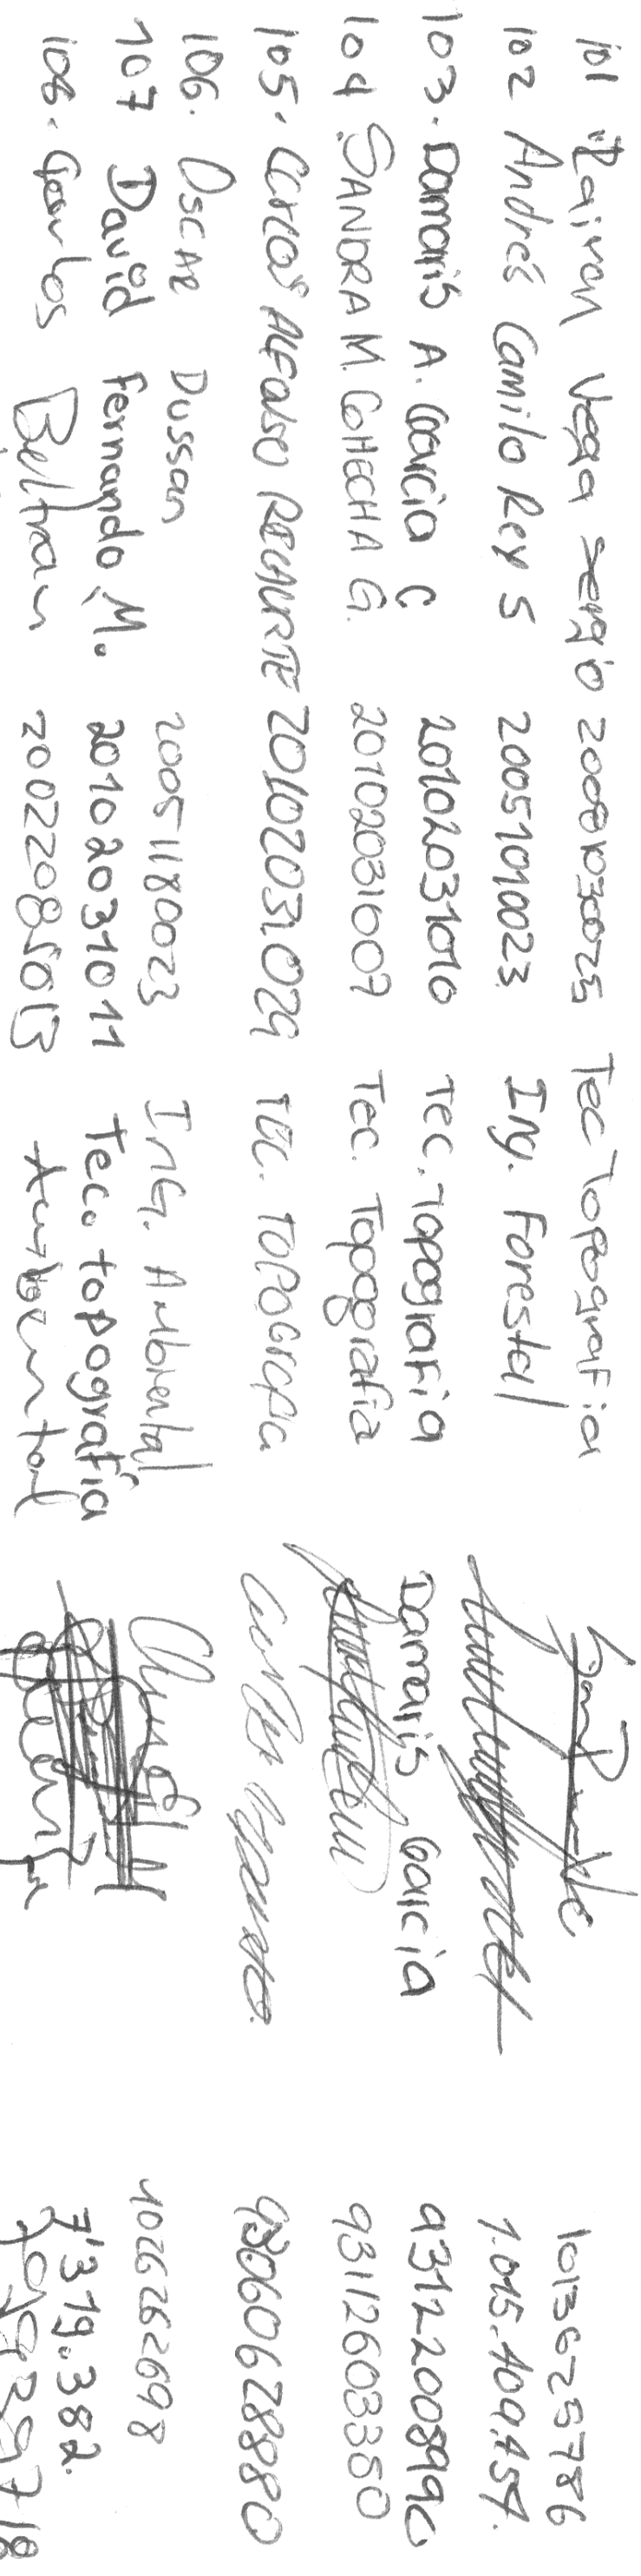 101 Rairon Vega Sergio 20081030025 Tec Topografia 1013625786
102 Andrés Camilo Rey S 20051010023 Ing. Forestal 1.015.409.454.
103. Damaris A. Garcia C 20102031010 Tec. Topografia Damaris Garcia 93122008990
104 SANDRA M. COHECHA G. 20102031007 Tec. Topografia 93112603350
105. Carlos ALFONSO RICAURTE 20102031029 TEC. TOPOGrafia 93060628880
106. OSCAR Dussan 20051180023 InG. Ambiental 1026262698
107 David Fernando M. 20102031011 Tec. topografia 7'319.382.
108. Carlos Beltran 20022085013 Ambiental